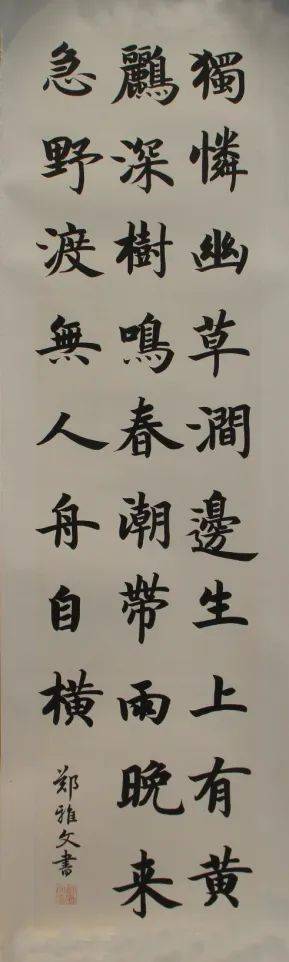 獨憐幽草澗邊生上有黄
鸝深樹鳴春潮帶雨晚来
急野渡無人舟自橫
郑雅文書